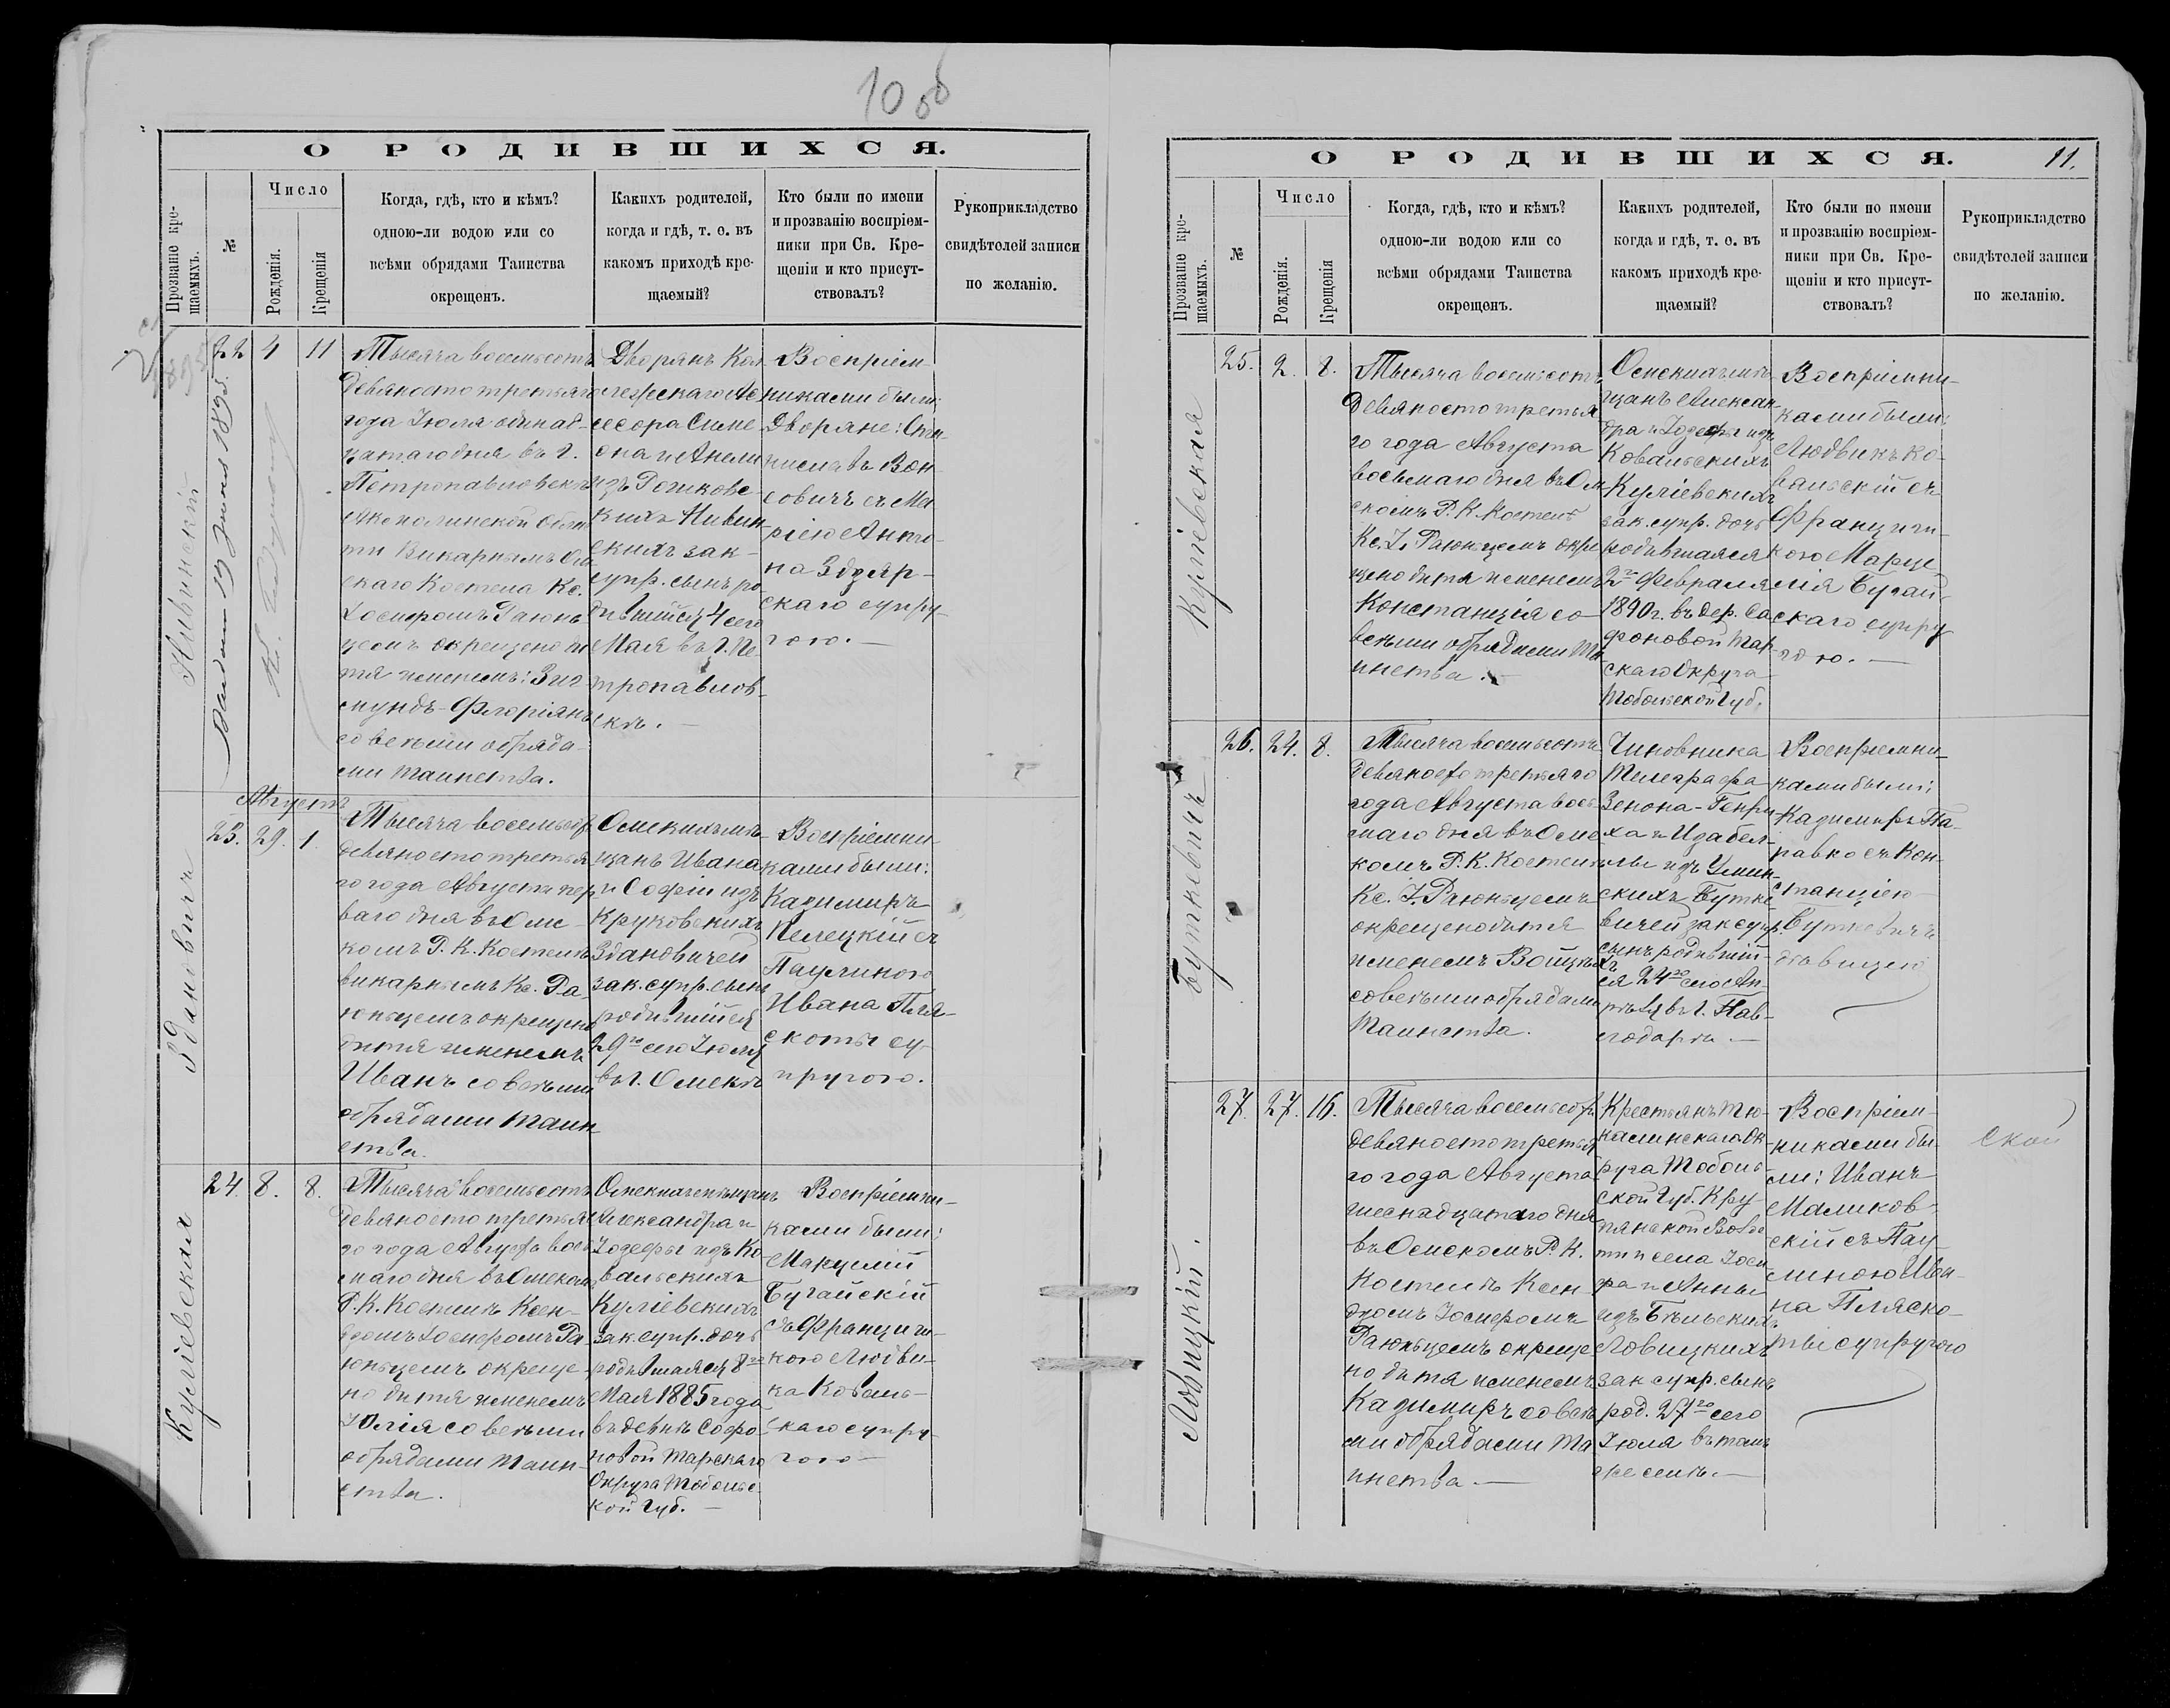 10 об
О РОДИВШИХСЯ.
Прозваніе кре-
щаемыхъ.
№
Число
Рожденія.
Крещенія
Когда, гдѣ, кто и кѣмъ?
одною-ли водою или со
всѣми обрядами Таинства
окрещенъ.
Какихъ родителей,
когда и гдѣ, т. е. въ
какомъ приходѣ кре-
щаемый?
Кто были по имени
и прозванію воспріем-
ники при Св. Кре-
щеніи и кто присут-
ствовалъ?
Рукоприкладство
свидѣтелей записи
по желанію.
Нивинскій
22
4
11
Тысяча восемьсотъ
девяносто третьяго
года Іюля одинад-
цатаго дня въ г.
Петропавловскѣ
Акмолинской Облас
ти Викарнымъ Ом
скаго Костела Кс.
Іосифомъ Раюнь
цемъ окрещено ди
тя именемъ: Зиг
мундъ-Флоріянъ
со всѣми обряда-
ми таинства.
Дворянъ Кол
лежскаго Ас
сесора Симе
она и Анели
изъ Рожковс
кихъ Нивин
скихъ зак-
супр. сынъ ро
дившійся 4 сего
Мая въ г. Пе
тропавлов-
скѣ.
Воспріем-
никами были:
Дворяне: Ста
ниславъ Вон
совичъ съ Ма
ріею Анто-
на Здзяр-
скаго супру-
гою.
Августъ
Здановичъ
23.
29.
1.
Тысяча восемьсот
девяносто третья
го года Августа пер
ваго дня въ Омс-
комъ Р. К. Костелѣ
викарнымъ Кс. Ра
юньцемъ окрещено
дитя именемъ
Иванъ со всѣми
обрядами Таин
ства.
Омскихъ мѣ-
щанъ Ивана
и Софіи изъ
Круковскихъ
Здановичей
зак. супр. сынъ
родившійся
29го сего Іюля
въ г. Омскѣ
Воспріемни-
ками были:
Казимиръ
Пелецкій съ
Паулиною
Ивана Пля-
скоты су-
пругою.
Куліевская
24.
8.
8.
Тысяча восемьсотъ
девяносто третья
го года Августа вось
маго дня въ Омском
Р. К. Костелѣ Ксен-
дзомъ Іосифомъ Ра
юньцемъ окреще-
но дитя именемъ
Юлія со всѣми
обрядами таин-
ства.
Омскихъ мѣщанъ
Александра и
Іозефы изъ Ко
вальскихъ
Куліевскихъ
зак. супр. дочь
родившаяся 8го
Мая 1885 года
въ дер. Софо
новой Тарскаго
Округа Тобольс
кой Губ.
Воспріемни-
ками были:
Марцелій
Бугайскій
съ Францишк
кою Людви-
ка Коваль-
скаго супру-
гою
О РОДИВШИХСЯ.
11.
Прозваніе кре-
щаемыхъ.
№
Число
Рожденія.
Крещенія
Когда, гдѣ, кто и кѣмъ?
одною-ли водою или со
всѣми обрядами Таинства
окрещенъ.
Какихъ родителей,
когда и гдѣ, т. е. въ
какомъ приходѣ кре-
щаемый?
Кто были по имени
и прозванію воспріем-
ники при Св. Кре-
щеніи и кто присут-
ствовалъ?
Рукоприкладство
свидѣтелей записи
по желанію.
Куліевская
25.
2.
8.
Тысяча восемьсотъ
девяносто третья
го года Августа
восьмаго дня въ Ом
скомъ Р. К. Костелѣ
Кс. І. Раюньцемъ окре
щено дитя именемъ
Констанція со
всѣми обрядами Та
инства.
Омскихъ мѣ
щанъ Алексан
дра и Іозефы изъ
Ковальскихъ
Куліевскихъ
зак. супр. дочь
родившаяся
2го Февраля
1890 г. въ дер. Са
фоновой Тар
скаго Округа
Тобольской Губ.
Воспріемни-
ками были:
Людвикъ Ко-
вальскій съ
Францишк
кою Марце
лія Бугай-
скаго супру
гою.
Буткевичъ
26.
24.
8.
Тысяча восемьсотъ
девяносто третьяго
года Августа вось
маго дня въ Омс
комъ Р. К. Костелѣ
Кс. І. Раюньцемъ
окрещено дитя
именемъ Войцѣхъ
со всѣми обрядами
Таинства.
Чиновника
Телеграфа
Зенона-Генри
ха и Изабел-
лы изъ Умин-
скихъ Бутке
вичей зак супр.
сынъ родивший-
ся 24го сего Ап-
рѣля въ г. Пав-
лодарѣ.
Воспріемни-
ками были:
Казимиръ Та-
равко съ Кон-
станціею
Буткевичъ
дѣвицею
Ловицкій.
27.
27.
16.
Тысяча восемьсотъ
девяносто третья
го года Августа
шеснадцатаго дня
въ Омскомъ Р. К.
Костелѣ Ксен
дзомъ Іосифомъ
Раюньцемъ окреще
но дитя именемъ
Казимиръ со всѣ
ми обрядами Та
инства
Крестьянъ Тю-
калинскаго Ок-
руга Тоболь-
ской Губ. Кру
тинской Волос
ти и села Іоси
фа и Анны
изъ Бѣльскихъ
Ловицкихъ
зак супр. сынъ
род. 27го сего
Іюля въ томъ
же селѣ.
Воспріем-
никами бы-
ли: Иванъ
Маликов-
скій съ Пау
линою Ива-
на Пляско-
ты супругою
ской